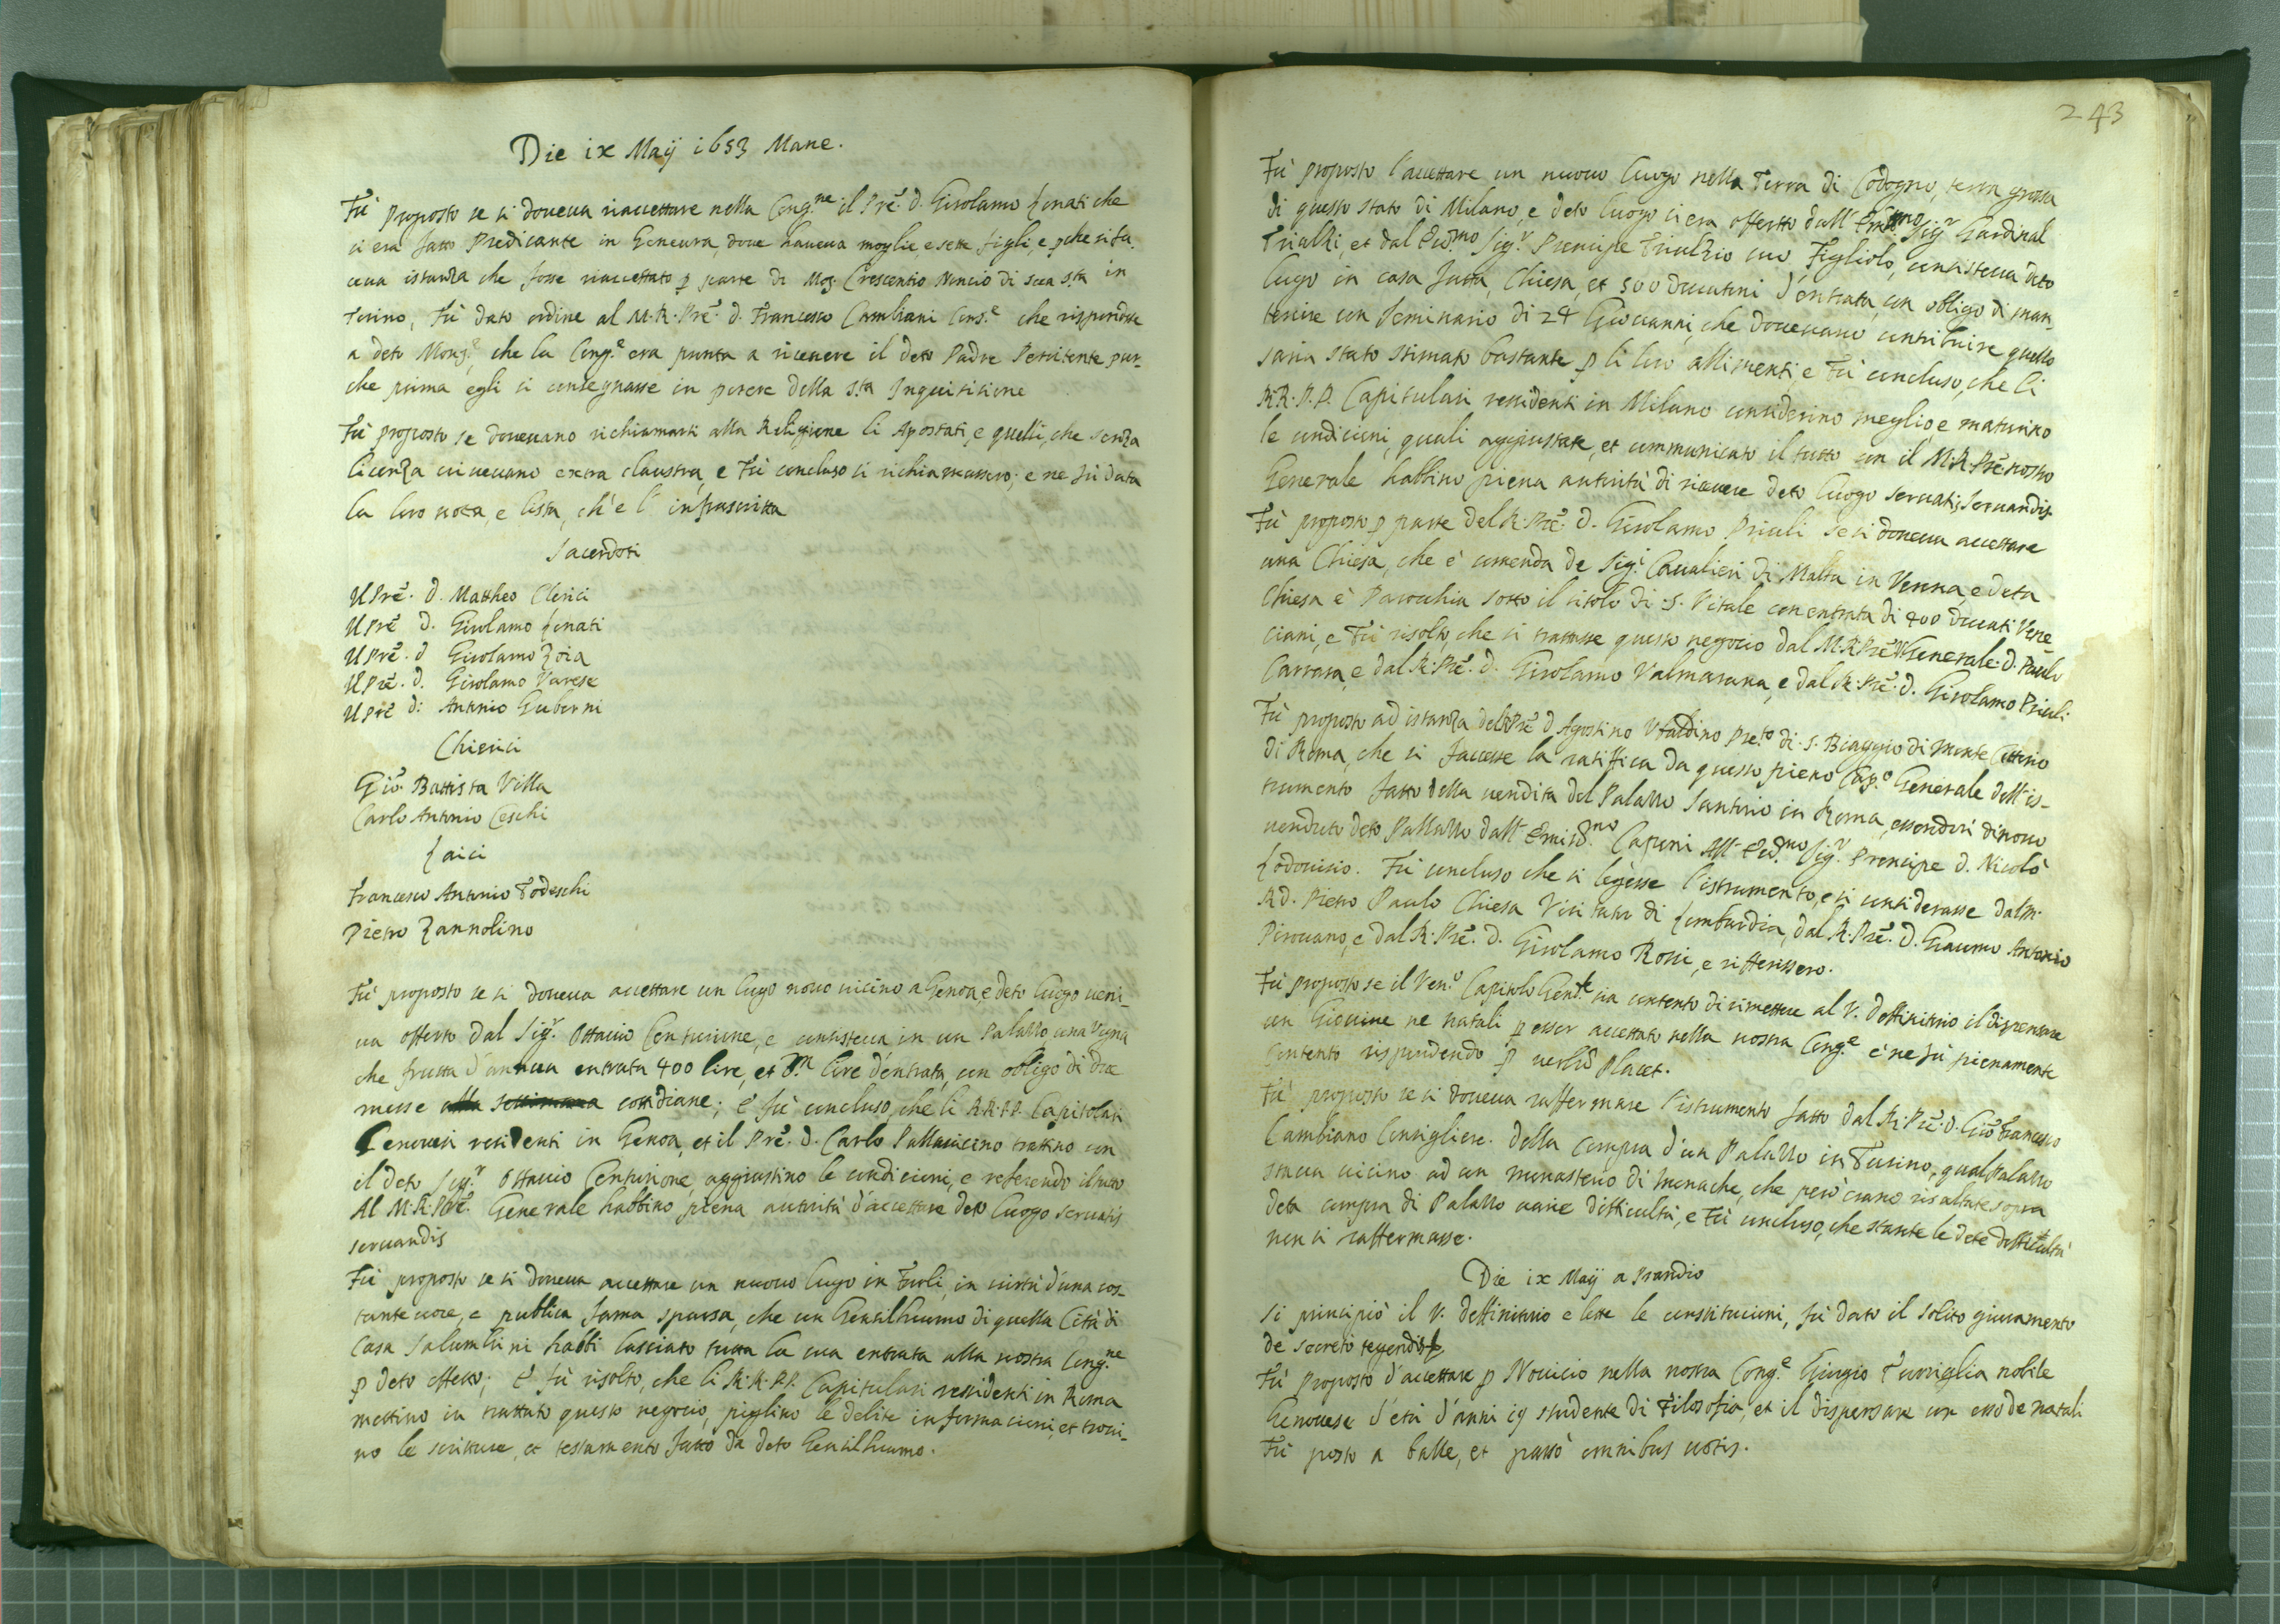 Die ix Maij 1653 Mane.
Fù proposto se si doueua riaccettare nella Cong.ne il Prē. D. Girolamo Lonati che
si era fatto Predicante in Geneura, doue haueua moglie, e sette figli, e ꝑche si fa-
ceua istanza che fosse riaccettato ꝑ parte di Mog. Crescentio Nuncio di sua S.ta in
Torino, Fù dato ordine al M.R. Prē. D. Francesco Cambiani Cons.e che rispondesse
a deto Mons.e che la Cong.e era pronta a riceuere il deto Padre Penitente pur-
che prima egli si consegnasse in potere della S.ta Inquisitione
Fù proposto se doueuano richiamarsi alla Religione li Apostati, e quelli, che senza
licenza uiueuano extra claustra, e Fù concluso si richiamassero; e ne fù data
la loro nota, e lista, ch'è l'infrascritta
Sacerdoti
Il Prē. D. Mattheo Clerici
Il Prē D. Girolamo Lonati
Il Prē. D Girolamo Zoia
Il Prē. D. Girolamo Varese
Il Prē D. Antonio Guberni
Chierici
Giō. Battista Villa
Carlo Antonio Ceschi
Laici
Francesco Antonio Todeschi
Pietro Zannolino
Fù proposto se si doueua accettare un luogo nouo uicino a Genoa, e deto luogo ueni-
ua offerto dal Sig.r Ottauio Centurione, e consisteua in un Palazzo, una Vigna
che frutta d'annua entrata 400 lire, et lire d'entrata, con obligo di due
messe alla settimana cottidiane; e fù concluso, che li R.R.P.P. Capitolari
Genouesi residenti in Genoa, et il Prē. D. Carlo Pallauicino trattino con
il deto Sig.r Ottauio Centurione, aggiustino le condicioni, e referendo il tutto
Al M.R. Prē. Generale habbino piena autorità d'accettare deto luogo seruatis
seruandis
Fù proposto se si doueua accettare un nuouo luogo in Tiuoli, in uirtù d'una cos-
tante uoce, e publica fama sparsa, che un Gentilhuomo di quella Cità di
Casa Salumbini habbi lasciato tutta la sua entrata alla nostra Cong.ne
ꝑ deto effetto; E' fù risolto, che li R.R.P.P. Capitulari ressidenti in Roma
mettino in trattato questo negocio, piglino le debite informacioni, et troui-
no le scritture, et testamento fatto da deto Gentilhuomo.
243
Fù proposto l'accettare un nuouo luogo nella Terra di Codogno, terra grossa
di questo stato di Milano, e deto luogo ci era offertto dall' Em.mo Sig.r Cardinal
Triulzi, et dal Ecc.mo Sig.r Prencipe Triulzio suo Figliolo, consisteua deto
luogo in casa fatta, Chiesa, et 500 ducatoni d'entrata, con obligo di man-
tenire un Seminario di 24 Giouanni, che doueuano contribuire quello
saria stato stimato bastante ꝑ li loro allimenti, e Fù concluso, che li
R.R.P.P. Capitulari ressidenti in Milano considerino meglio e maturino
le condicioni, quali aggiustate, et communicato il tutto con il M.R. Prē nostro
Generale habbino piena autorità di riceuere deto luogo seruatis seruandis.
Fù proposto ꝑ parte del R. Prē. D. Girolamo Priuli se si doueua accettare
una Chiesa, che è comenda de Sig.i Caualieri di Malta in Verona, e deta
Chiesa è Parocchia sotto il titolo di S. Vitale con entrata di 400 Ducati Vene-
ciani, e Fù risolto, che si trattasse questo negocio dal M.R. Prē V. Generale D. Paulo
Carrara, e dal R. Prē. D. Girolamo Valmarana, e dal R. Prē. D. Girolamo Priuli.
Fù proposto ad istanza del Prē D Agostino Vbaldino Pre.to di S. Biaggio di Monte Cittorio
di Roma, che si facesse la ratiffica da questo pieno Cap.o Generale dell'is-
trumento fatto della uendita del Palazzo Santorio in Roma, essendosi dinouo
uenduto deto Pallazzo dall' Capponi All' Ecc.mo Sig.r Prencipe D. Nicolò
Lodouisio. Fù concluso che si legesse l'istrumento, e si considerasse dal M.
R D. Pietro Paulo Chiesa Visitator di Lombardia, dal R. Prē. D. Giacomo Antonio
Pirouano, e dal R. Prē. D. Girolamo Rossi, e rifferissero.
Fù proposto se il Ven.o Capitolo Gen.le sia contento di rimettere al V. Deffinitorio il dispensare
un Giouine ne natali ꝑ esser accettato nella nostra Cong.e e ne fù pienamente
contento rispondendo ꝑ uerbū Placet.
Fù proposto se si doueua raffermare l'istrumento fatto dal R. Prē. D. Giō Francesco
Cambiano Consigliere. della compra d'un Palazzo in Turino, qual Palazzo
staua uicino ad un monasterio di Monache, che però erano risaltate sopra
deta compra di Palazzo uarie difficultà, e Fù concluso, che stante le dete difficultà
non si raffermasse.
Die ix Maij a Prandio
Si principiò il V. Deffinitorio e lette le constitucioni, fù dato il solito giuramento
de secreto tenendo
Fù proposto d'accettare ꝑ Nouicio nella nostra Cong.e Giorgio Torriglia nobile
Genouese d'età d'anni 19 studente di Filosofia, et il dispensare con esso de natali
Fù posto a balle, et passò omnibus uotis.